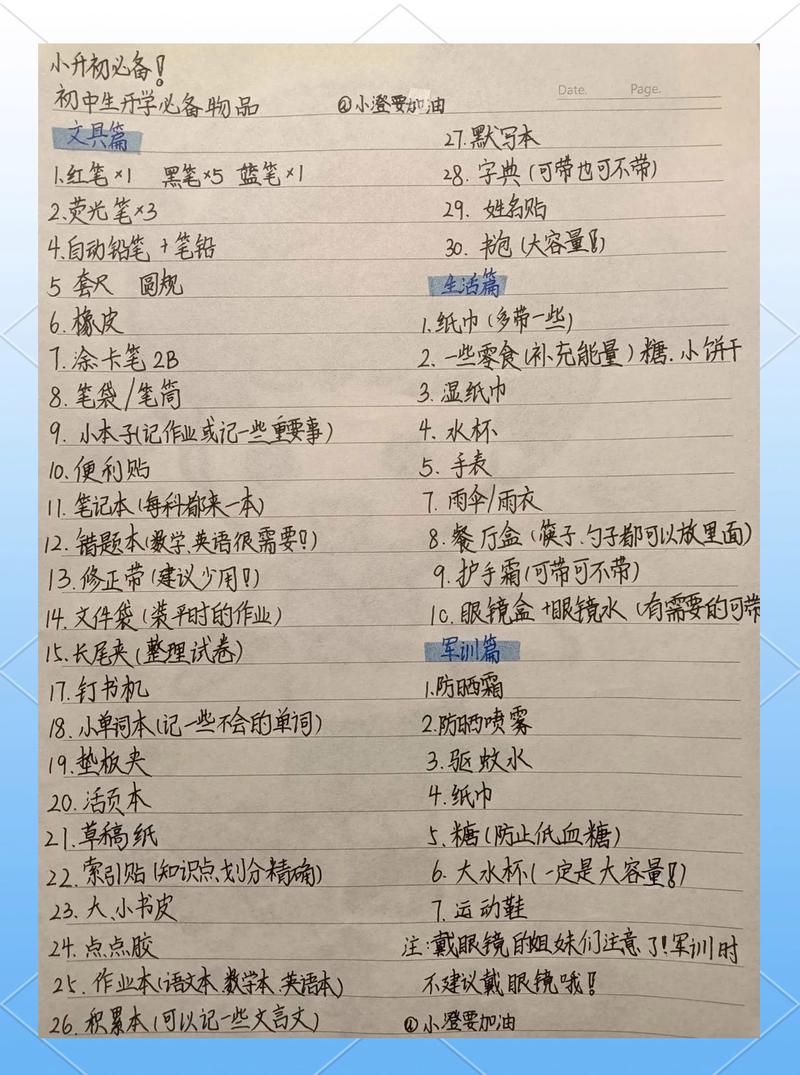 小升初必备!
初中生开学必备物品 @小澄要加油
Date. Page.
文具篇
1.红笔×1 黑笔×5 蓝笔×1
2.荧光笔×3
4.自动铅笔 + 笔铅
5 套尺 圆规
6.橡皮
7.涂卡笔 2B
8.笔袋/笔筒
9. 小本子(记作业或记一些重要事)
10.便利贴
11.笔记本(每科都来一本)
12.错题本(数学、英语很需要!)
13.修正带(建议少用!)
14.文件袋(装平时的作业)
15.长尾夹(整理试卷)
17.钉书机
18.小单词本(记一些不会的单词)
19.垫板夹
20.活页本
21.草稿纸
22.索引贴(知识点划分精确)
23.大、小书皮
24.点点胶
25.作业本(语文本、数学本、英语本)
26.积累本(可以记一些文言文)
27.默写本
28.字典(可带也可不带)
29. 姓名贴
30. 书包(大容量!)
生活篇
1.纸巾(多带一些)
2. 一些零食(补充能量)糖.小饼干
3.湿纸巾
4.水杯
5.手表
7.雨伞/雨衣
8.餐厅盒(筷子、勺子都可以放里面)
9.护手霜(可带可不带)
10.眼镜盒+眼镜水(有需要的可带
军训篇
1.防晒霜
2.防晒喷雾
3.驱蚊水
4.纸巾
5.糖(防止低血糖)
6.大水杯(一定是大容量!)
7.运动鞋
注:戴眼镜的姐妹们注意了!军训时
不建议戴眼镜哦!
@小澄要加油